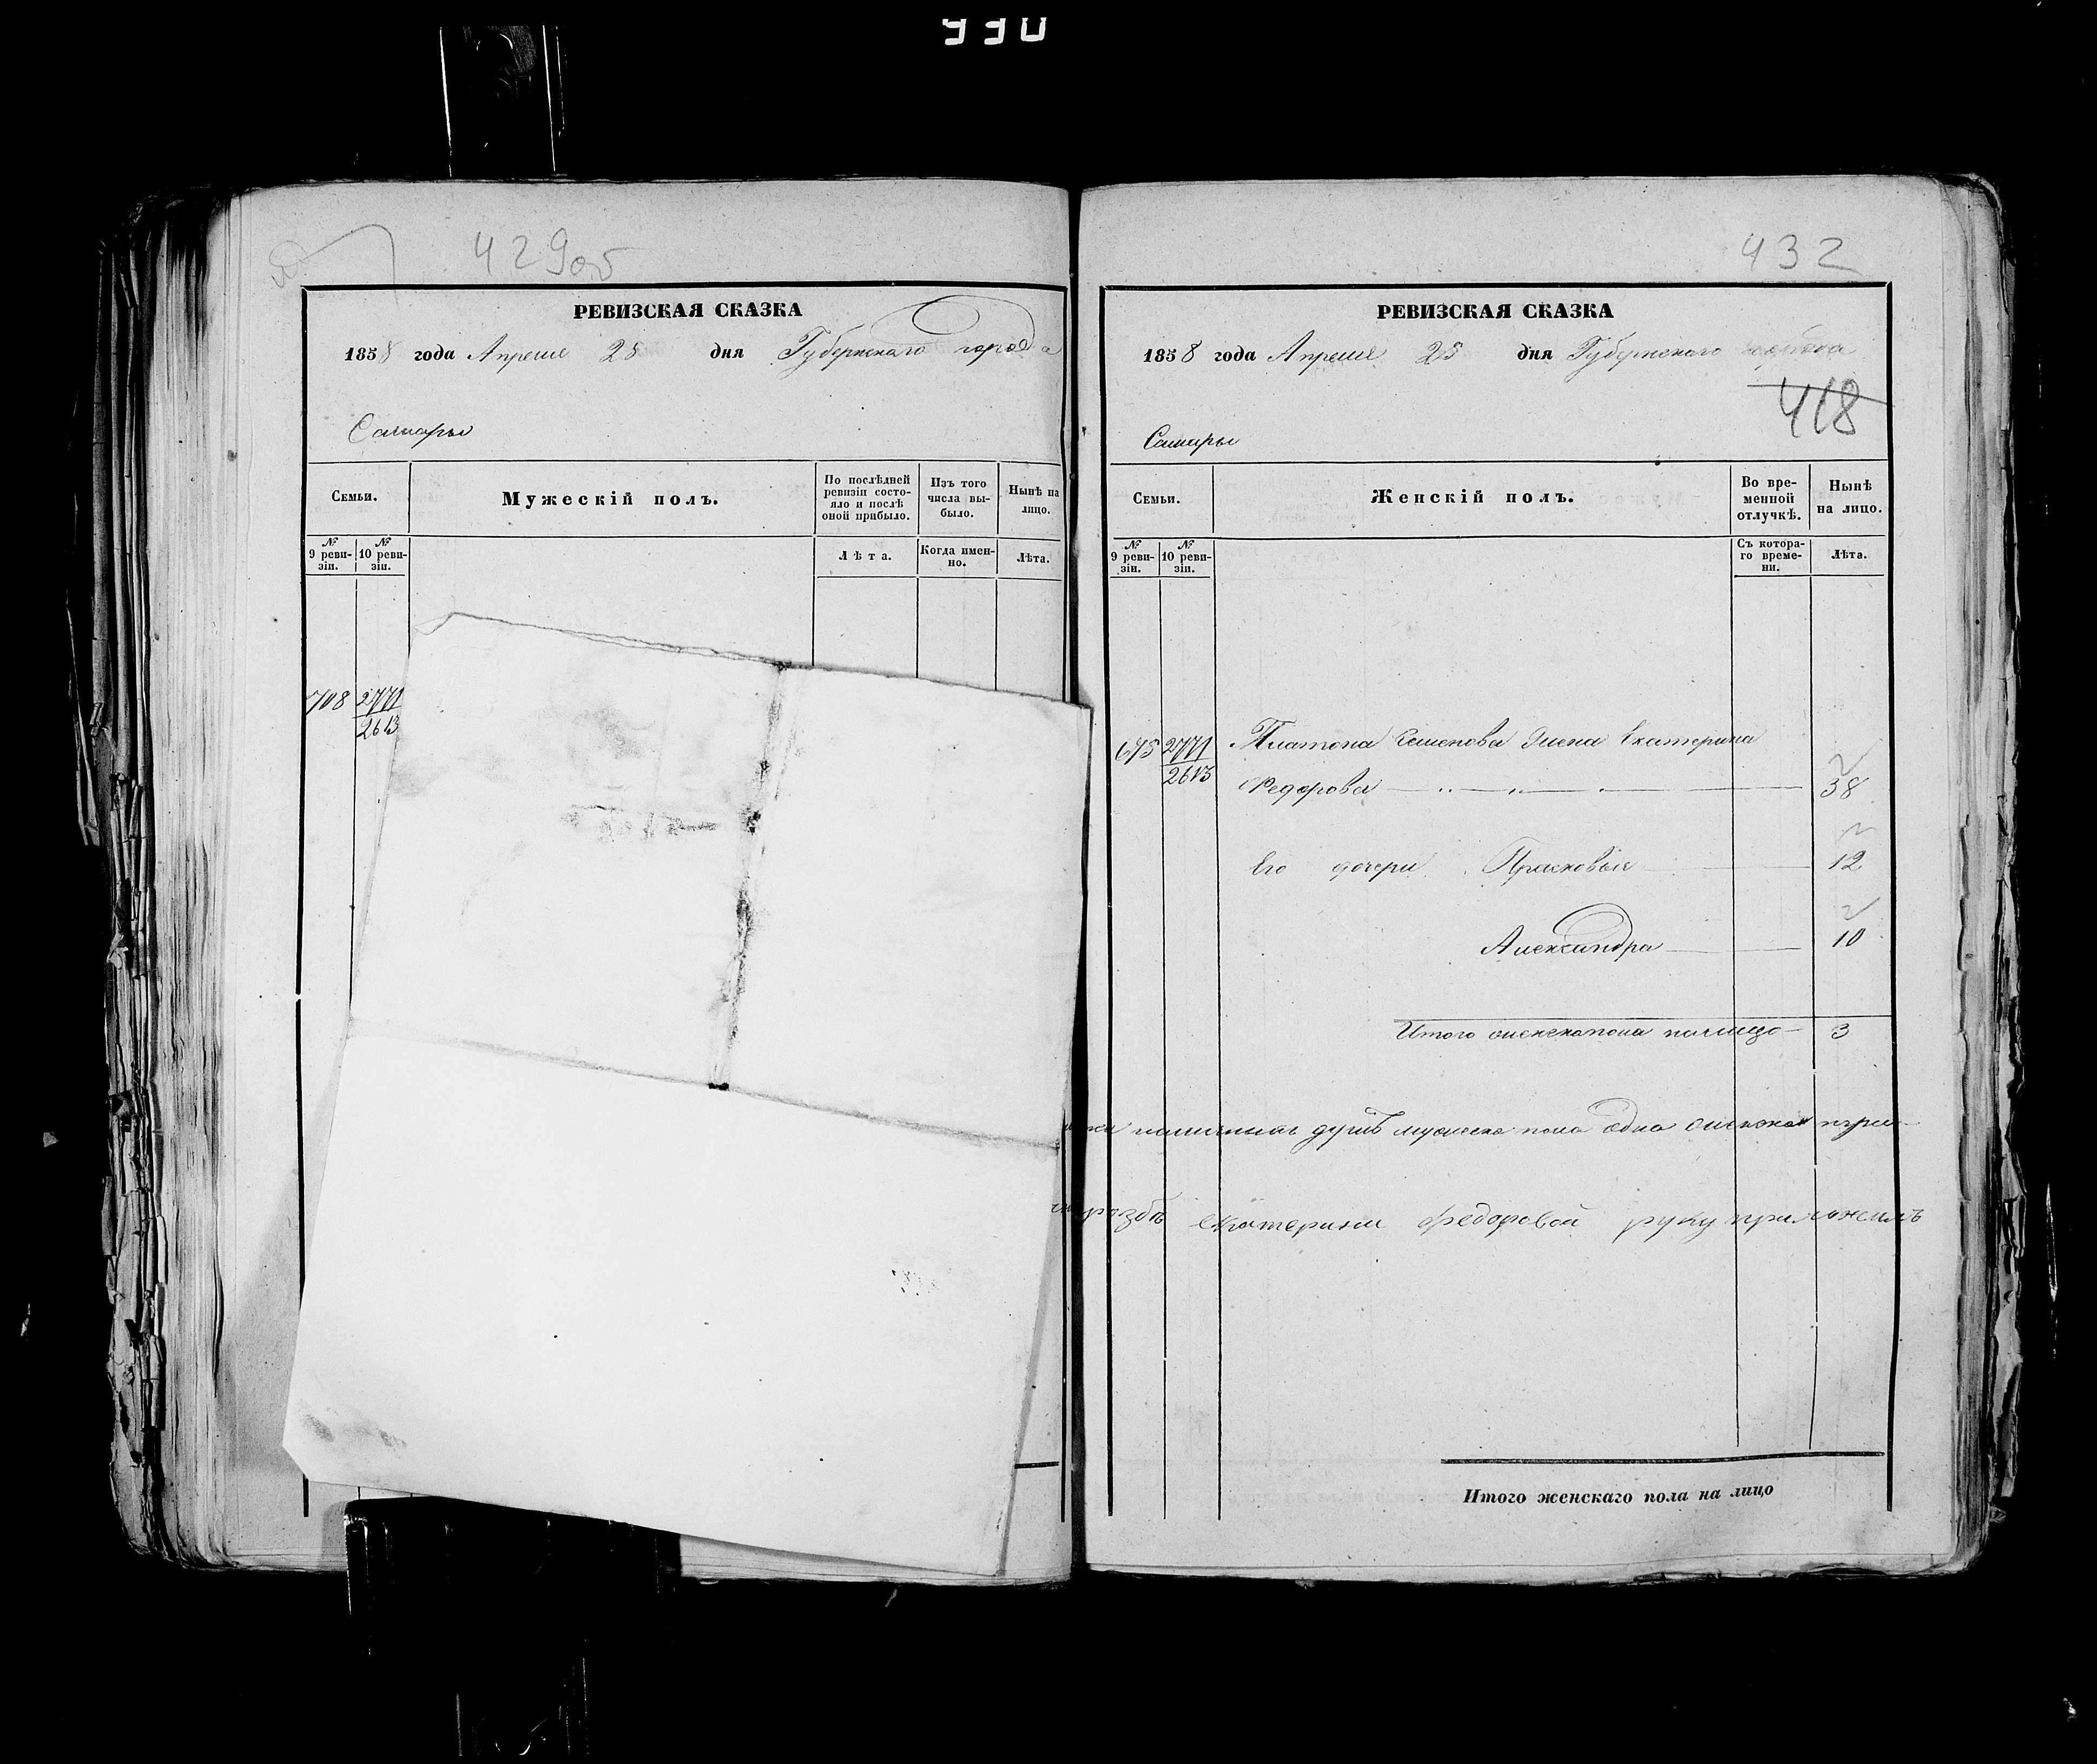 990
429об
РЕВИЗСКАЯ СКАЗКА
1858 года Апреля 25 дня Губернскаго города
Самары
Семьи.
Мужескій полъ.
По послѣдней ревизіи состояло и послѣ оной прибыло.
Изъ того числа выбыло.
Нынѣ на лицо.
№ 9 ревизіи.
№ 10 ревизіи.
Лѣта.
Когда именно.
Лѣта.
708 2771
2613
432
РЕВИЗСКАЯ СКАЗКА
1858 года Апреля 25 дня Губернскаго города
418
Самары
Семьи.
Женскій полъ.
Во временной отлучкѣ.
Нынѣ на лицо.
№ 9 ревизіи.
№ 10 ревизіи.
Съ котораго времени.
Лѣта.
695 2771 Платона Семенова жена Екатерина
2613 Федорова 38
Его дочери Прасковья 12
Александра 10
Итого женска пола налицо 3
наличныхъ душъ мужеска пола одна женска три
Екатерини федоровой руку приложилъ
Итого женскаго пола на лицо